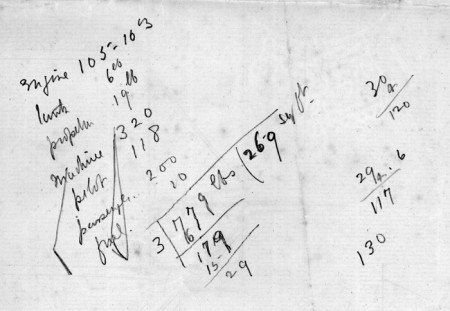 engine 105-103
tank 6 00
propeller 19 lb
Machine 320
pilot 118
passenger 200
fuel 20
3 | 779 lbs ( 269 sq ft.
6
179
15
29
30
120
29 6
117
130